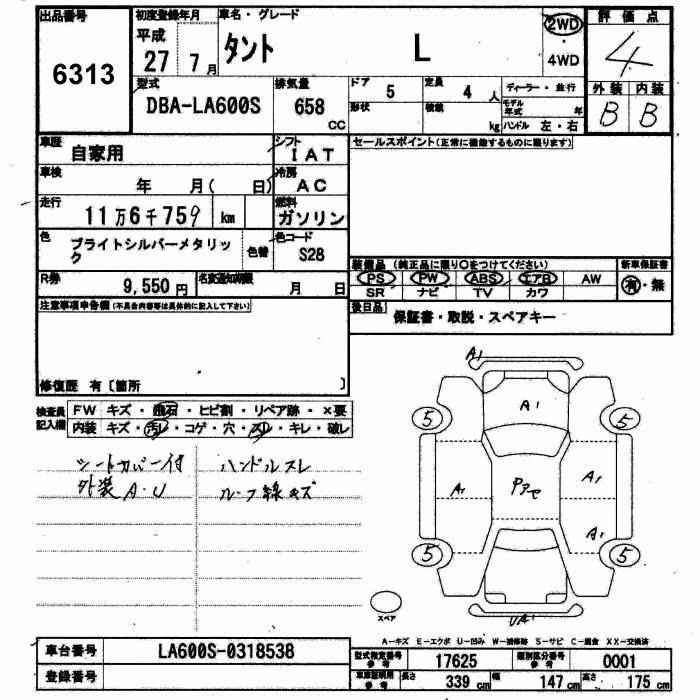 出品番号 初度登録年月 車名・グレード 2WD 評価点
6313 平成 27年 7月 タント L 4WD 4
型式 DBA-LA600S 排気量 658 CC ドア 5 定員 4 人 ディーラー・並行 外装 内装
形状 積載 kg モデル年式 年 ハンドル 左・右 B B
車歴 自家用 シフト IAT セールスポイント(正常に機能するものに限ります)
車検 年 月( 日) 冷房 AC
走行 11万6千759 km 燃料 ガソリン
色 ブライトシルバーメタリック 色替 色コード S28
装備品 (純正品に限り○をつけてください) 新車保証書
R券 9,550円 名変通知期限 月 日 PS PW ABS エアB AW 有・無
SR ナビ TV カワ
注意事項申告欄(不具合内容等は具体的に記入して下さい) 後日品 保証書・取説・スペアキー
修復歴 有〔箇所 〕
検査員記入欄 FW キズ・飛石・ヒビ割・リペア跡・×要
内装 キズ・汚レ・コゲ・穴・スレ・キレ・破レ
シートカバー付 ハンドルスレ
外装A・U ルーフ線キズ
A1
A1
5 5
A1 Pアセ A1
A1
5 5
スペア UA1
A-キズ E-エクボ U-凹み W-補修跡 S-サビ C-腐食 XX-交換済
車台番号 LA600S-0318538 型式指定番号 参考 17625 類別区分番号 参考 0001
登録番号 車庫証明用 参考 長さ 339 cm 幅 147 cm 高さ 175 cm